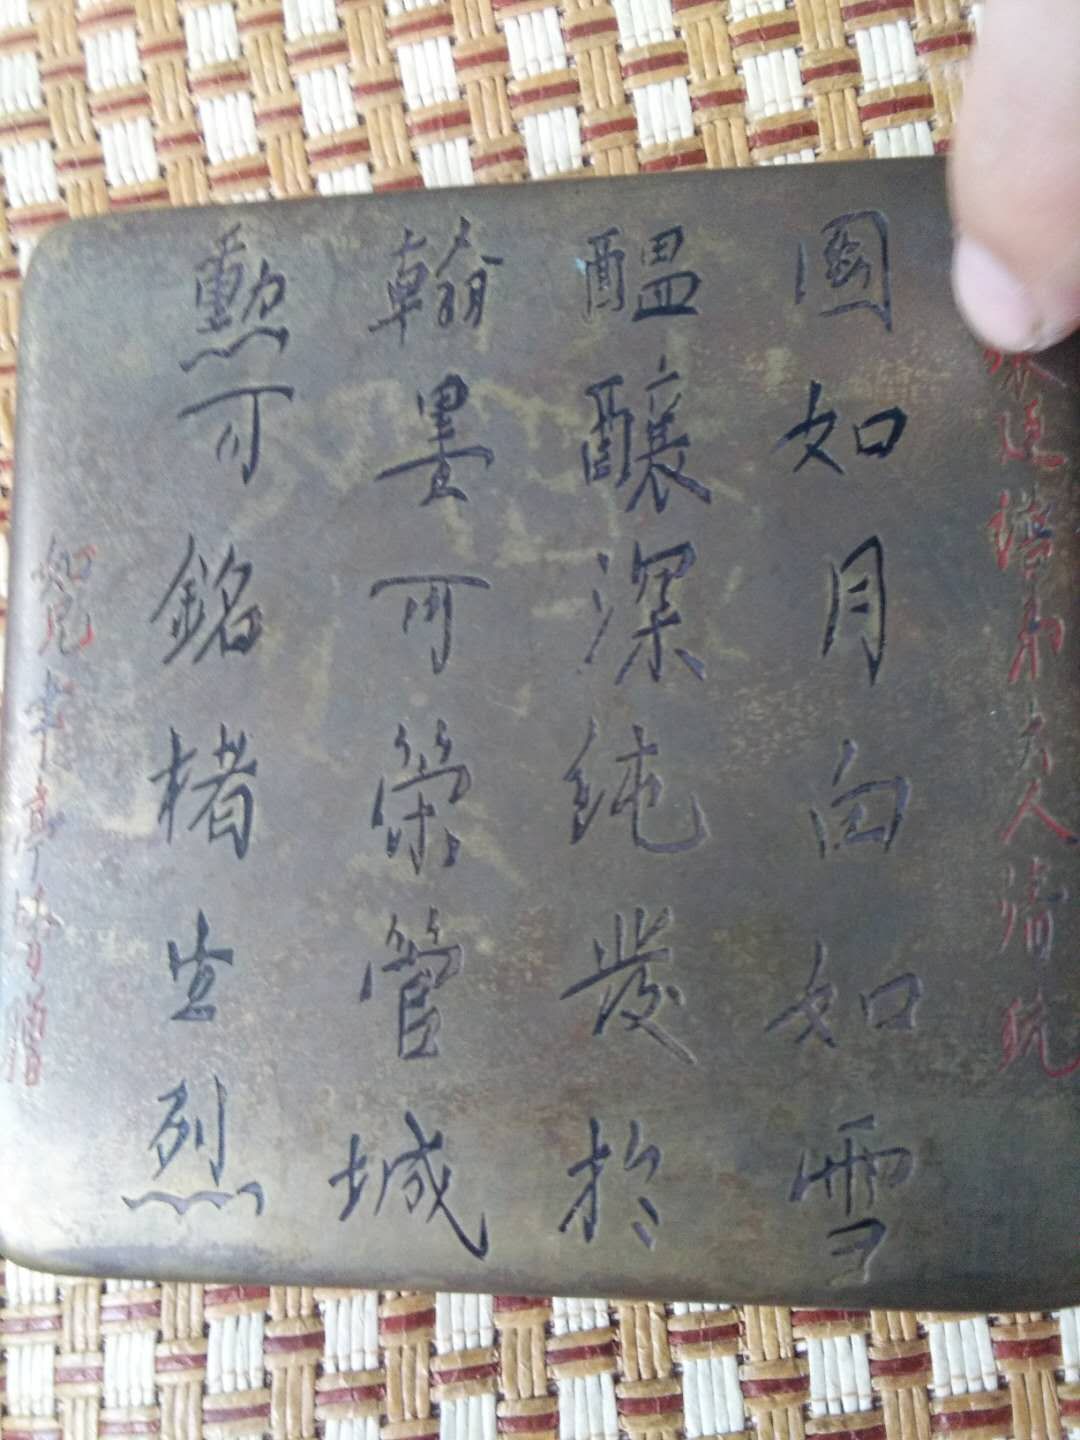 圓如月白如雪
醞釀深純發於
翰墨可榮管城
勳可銘楮生烈
大人清玩